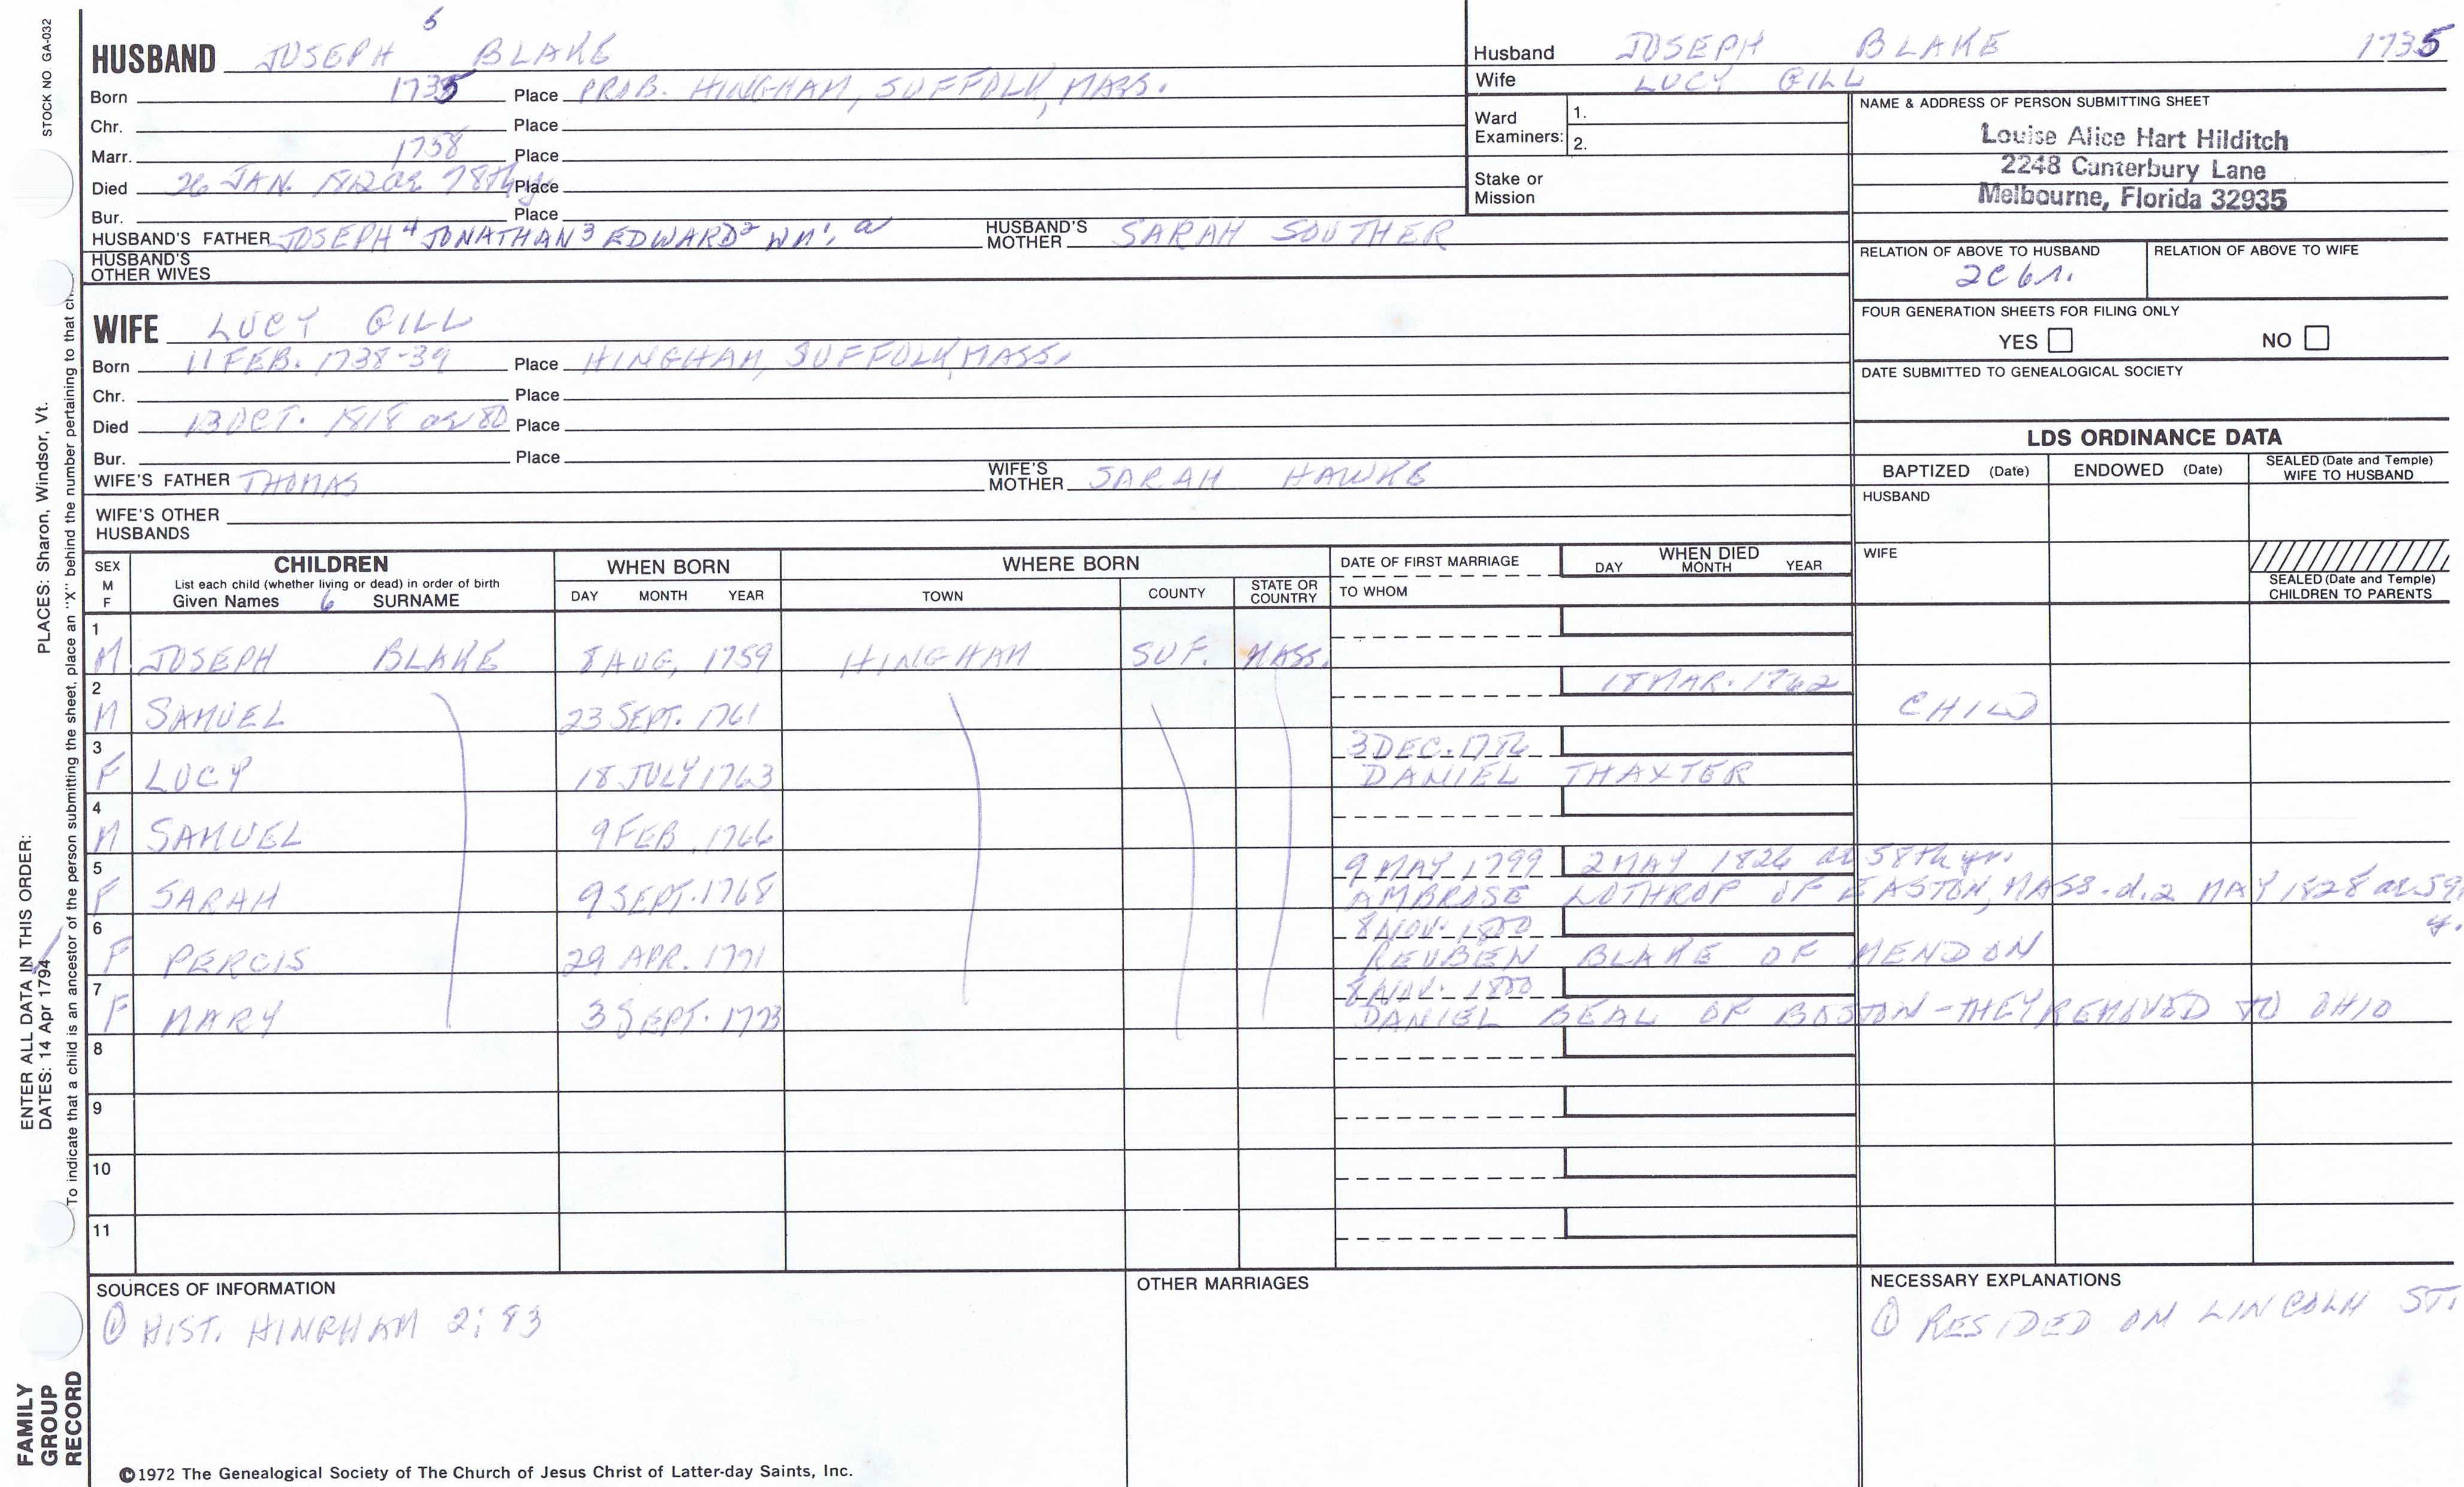 STOCK NO GA-032
PLACES: Sharon, Windsor, Vt.
ENTER ALL DATA IN THIS ORDER:
DATES: 14 Apr 1794
To indicate that a child is an ancestor of the person submitting the sheet, place an "X" behind the number pertaining to that
FAMILY GROUP RECORD
HUSBAND JOSEPH 5 BLAKE
Born 1735 Place PROB. HINGHAM, SUFFOLK, MASS.
Chr. Place
Marr. 1758 Place
Died 26 JAN. 78th y Place
Bur. Place
HUSBAND'S FATHER JOSEPH 4 JONATHAN 3 EDWARD 2 WM 1, a HUSBAND'S MOTHER SARAH SOUTHER
HUSBAND'S OTHER WIVES
WIFE LUCY GILL
Born 11 FEB. 1738-39 Place HINGHAM, SUFFOLK, MASS.
Chr. Place
Died 13 OCT. 1818 ae 80 Place
Bur. Place
WIFE'S FATHER THOMAS WIFE'S MOTHER SARAH HAWKE
WIFE'S OTHER HUSBANDS
Husband JOSEPH BLAKE 1735
Wife LUCY GILL
Ward Examiners: 1. 2.
Stake or Mission
NAME & ADDRESS OF PERSON SUBMITTING SHEET
Louise Alice Hart Hilditch
2248 Canterbury Lane
Melbourne, Florida 32935
RELATION OF ABOVE TO HUSBAND RELATION OF ABOVE TO WIFE
2C 6r.
FOUR GENERATION SHEETS FOR FILING ONLY
YES NO
DATE SUBMITTED TO GENEALOGICAL SOCIETY
LDS ORDINANCE DATA
BAPTIZED (Date) ENDOWED (Date) SEALED (Date and Temple) WIFE TO HUSBAND
HUSBAND
WIFE
SEALED (Date and Temple) CHILDREN TO PARENTS
SEX M F
CHILDREN
List each child (whether living or dead) in order of birth
Given Names 6 SURNAME
WHEN BORN
DAY MONTH YEAR
WHERE BORN
TOWN COUNTY STATE OR COUNTRY
DATE OF FIRST MARRIAGE
TO WHOM
WHEN DIED
DAY MONTH YEAR
1 M JOSEPH BLAKE 8 AUG, 1759 HINGHAM SUF. MASS.
2 M SAMUEL 23 SEPT. 1761 18 MAR. 1762 CHILD
3 F LUCY 18 JULY 1763 3 DEC. 1786 DANIEL THAXTER
4 M SAMUEL 9 FEB. 1766
5 F SARAH 9 SEPT. 1768 9 MAY 1799 2 MAY 1826 ae 58th yr.
AMBROSE LOTHROP OF EASTON, MASS. d. 2 MAY 1828 ae 59
6 F PERCIS 29 APR. 1771 8 NOV. 1800
REUBEN BLAKE OF MENDON
7 F MARY 3 SEPT. 1773 8 NOV. 1800
DANIEL BEAL OF BOSTON - THEY REMOVED TO OHIO
8
9
10
11
SOURCES OF INFORMATION
① HIST. HINGHAM 2: 83
OTHER MARRIAGES
NECESSARY EXPLANATIONS
① RESIDED ON LINCOLN ST.
©1972 The Genealogical Society of The Church of Jesus Christ of Latter-day Saints, Inc.